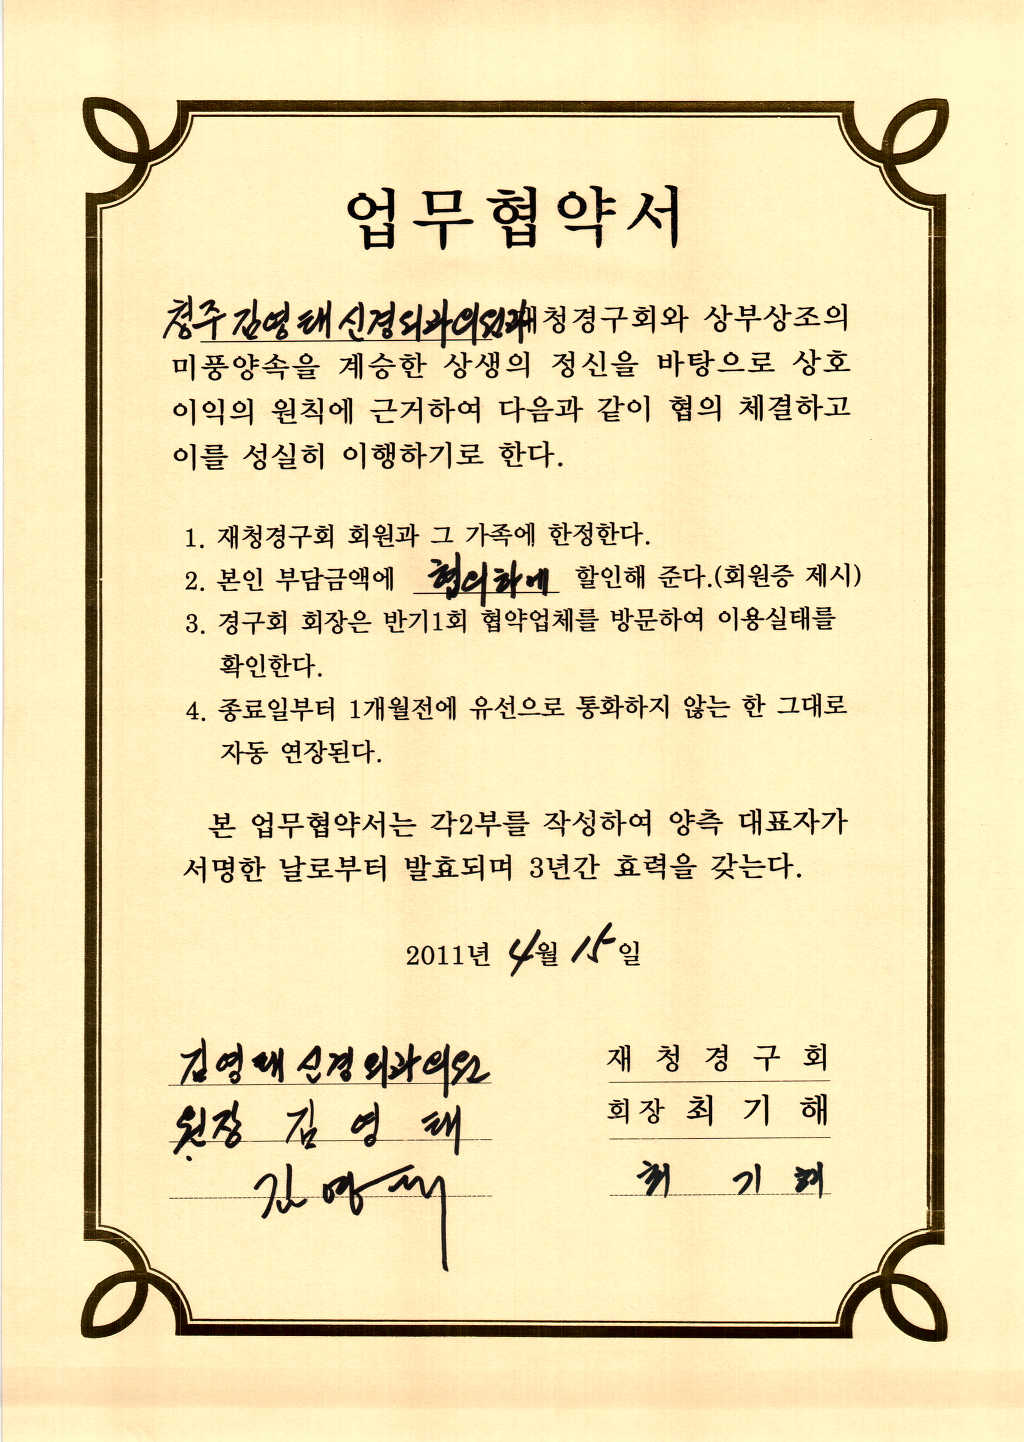 업무협약서
청주 김영태 신경외과의원과 재청경구회와 상부상조의
미풍양속을 계승한 상생의 정신을 바탕으로 상호
이익의 원칙에 근거하여 다음과 같이 협의 체결하고
이를 성실히 이행하기로 한다.
1. 재청경구회 회원과 그 가족에 한정한다.
2. 본인 부담금액에 협의하에 할인해 준다.(회원증 제시)
3. 경구회 회장은 반기1회 협약업체를 방문하여 이용실태를
확인한다.
4. 종료일부터 1개월전에 유선으로 통화하지 않는 한 그대로
자동 연장된다.
본 업무협약서는 각2부를 작성하여 양측 대표자가
서명한 날로부터 발효되며 3년간 효력을 갖는다.
2011년 4월 15일
김영태 신경외과의원
원장 김 영 태
김영태
재 청 경 구 회
회장 최 기 해
최 기 해